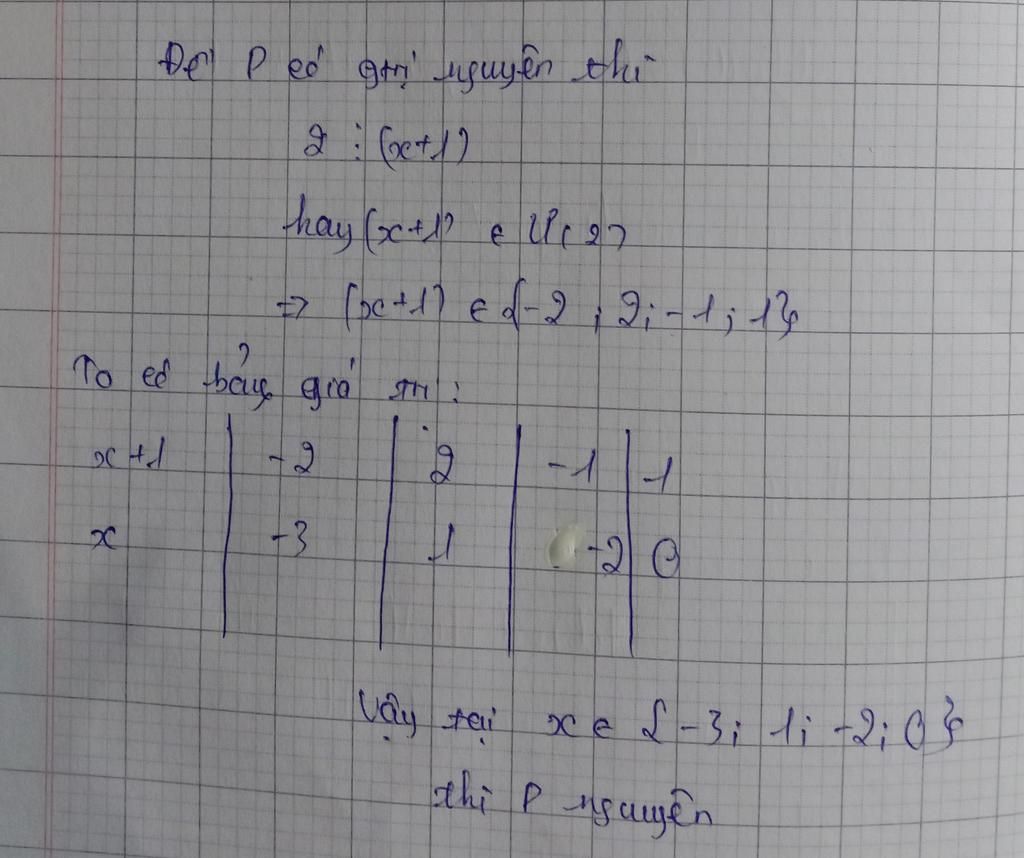 Để P có gtrị nguyên thì
2 ⋮ (x+1)
hay (x+1) ∈ Ư(2)
=> (x+1) ∈ {-2 ; 2; -1; 1}
Ta có bảng giá trị :
x+1 | -2 | 2 | -1 | 1
x | -3 | 1 | -2 | 0
Vậy tại x ∈ {-3; 1; -2; 0}
thì P nguyên